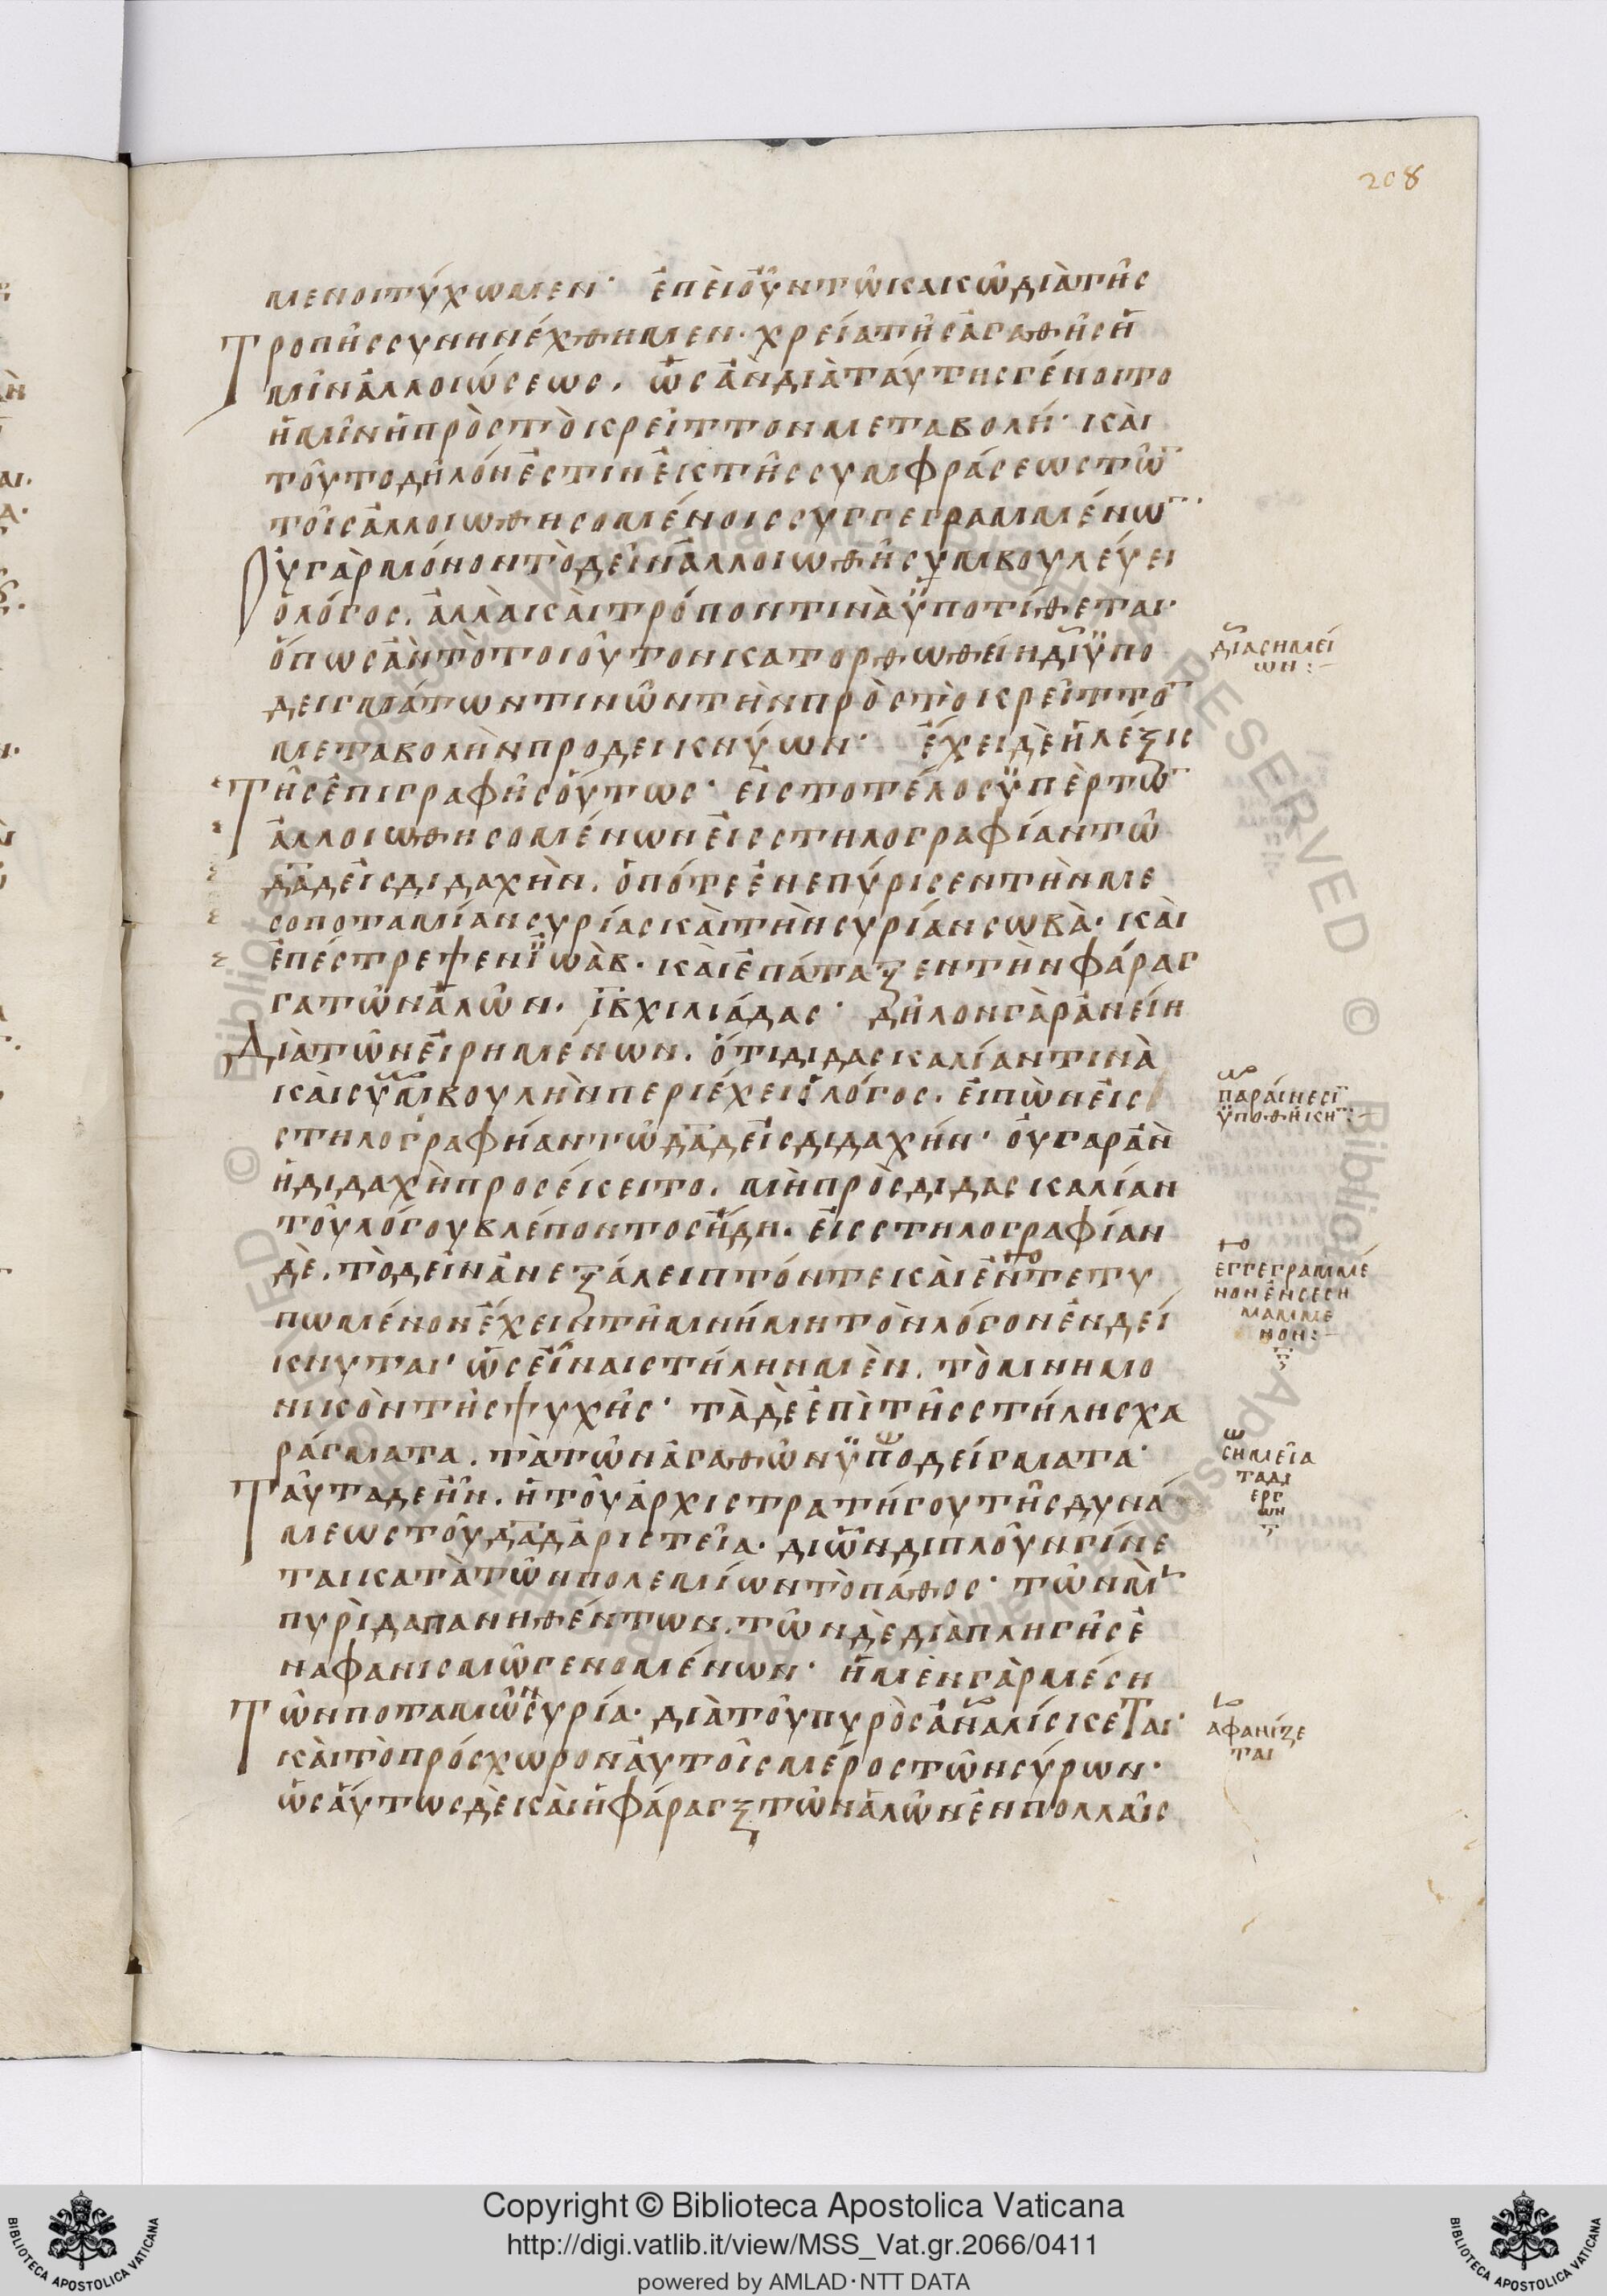 208
μενοι τύχωμεν· ἐπεὶ οὖν τῶ κακῶ διὰ τῆς
τροπῆς συνηνέχθημεν· χρεία τῆς ἀγαθῆς ἡ
μῖν ἀλλοιώσεως. ὡς ἂν διὰ ταύτης γένοιτο
ἡμῖν ἡ πρὸς τὸ κρεῖττον μεταβολή· καὶ
τοῦτο δηλόν ἐστιν ἐκ τῆς συμφράσεως τῶ̅
τοῖς ἀλλοιωθησομένοις συγγεγραμμένω̅·
Οὐ γὰρ μόνον τὸ δεῖν ἀλλοιωθῆ συμβουλεύει
ὁ λόγος. ἀλλὰ καὶ τρόπον τινὰ ὑποτίθεται·
ὅπως ἂν τὸ τοιοῦτον κατορθωθείη δι' ὑπο
δειγμάτων τινῶν τὴν πρὸς τὸ κρεῖττο̅
μεταβολὴν προδεικνύων· ἔχει δὲ ἡ λέξις
τῆς ἐπιγραφῆς οὕτως· εἰς το τέλος ὑπὲρ τῶ̅
ἀλλοιωθησομένων εἰς στηλογραφίαν τῶ
δα̅δ εἰς διδαχὴν. ὁπότε ἐνεπύρισεν τὴν με
σοποταμίαν συρίας καὶ τὴν συρίαν σωβὰ· καὶ
ἐπέστρεψεν ἰωὰβ· καὶ ἐπάταξεν τὴν φάραγ
γα τῶν ἁλῶν. ι̅β̅ χιλιάδας· δῆλον γὰρ ἂν εἴη
Διὰ τῶν εἰρημένων. ὅτι διδασκαλίαν τινὰ
καὶ συμβουλὴν περιέχει ὁ λόγος. εἰπὼν εἰς
στηλογραφίαν τῶ δα̅δ εἰς διδαχήν· οὐ γαρ ἂν
ἡ διδαχὴ προσέκειτο. μὴ πρὸς διδασκαλίαν
τοῦ λόγου βλέποντος ἤδη. εἰς στηλογραφίαν
δὲ. τὸ δεῖν ἀνεξάλειπτόν τε καὶ ἐντετυ
πωμένον ἔχειν τῆ μνήμη τὸν λόγον ἐνδεί
κνυται· ὡς εἶναι στήλην μὲν. τὸ μνημο
νικὸν τῆς ψυχῆς· τὰ δὲ ἐπὶ τῆς στήλης χα
ράγματα. τὰ τῶν ἀγαθῶν ὑποδείγματα·
Ταῦτα δε ἦν. ἡ τοῦ ἀρχιστρατήγου τῆς δυνά
μεως τοῦ δα̅δ ἀριστεῖα· δι ὧν διπλοῦν γίνε
ται κατὰ τῶν πολεμίων τὸ πάθος· τῶν μὲν
πυρὶ δαπανηθέντων. τῶν δὲ διὰ πληγῆς ἐ
ναφανισμῶ γενομένων· ἡ μὲν γὰρ μέση
τῶν ποταμῶν συρία· διὰ τοῦ πυρὸς ἀναλίσκεται·
καὶ τὸ πρόσχωρον αὐτοῖς μέρος τῶν σύρων·
ὡς αὔτως δὲ καὶ ἡ φάραγξ τῶν ἁλῶν ἐν πολλαῖς
διασημεί
ων:
παραίνεσι̅
ὑποθήκη̅:
εγγεγραμμέ
νον ἐνσεση
μαμμε
νον:
σημεῖα
ἀφανίζε
ται
Copyright © Biblioteca Apostolica Vaticana
http://digi.vatlib.it/view/MSS_Vat.gr.2066/0411
powered by AMLAD·NTT DATA
BIBLIOTECA APOSTOLICA VATICANA
BIBLIOTECA APOSTOLICA VATICANA